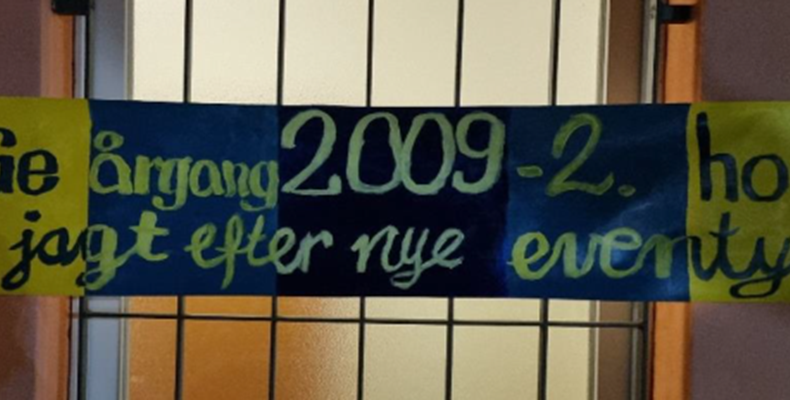 ie årgang 2009-2. ho
jagt efter nye eventy